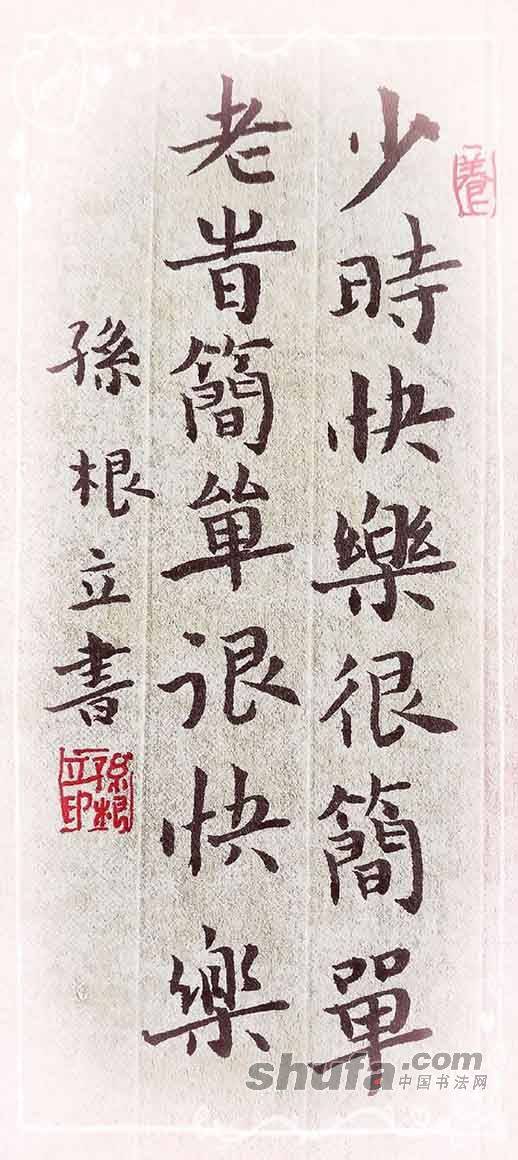 少時快樂很簡單
老旹簡單很快樂
孫根立書
孫根立印
shufa.com
中国书法网